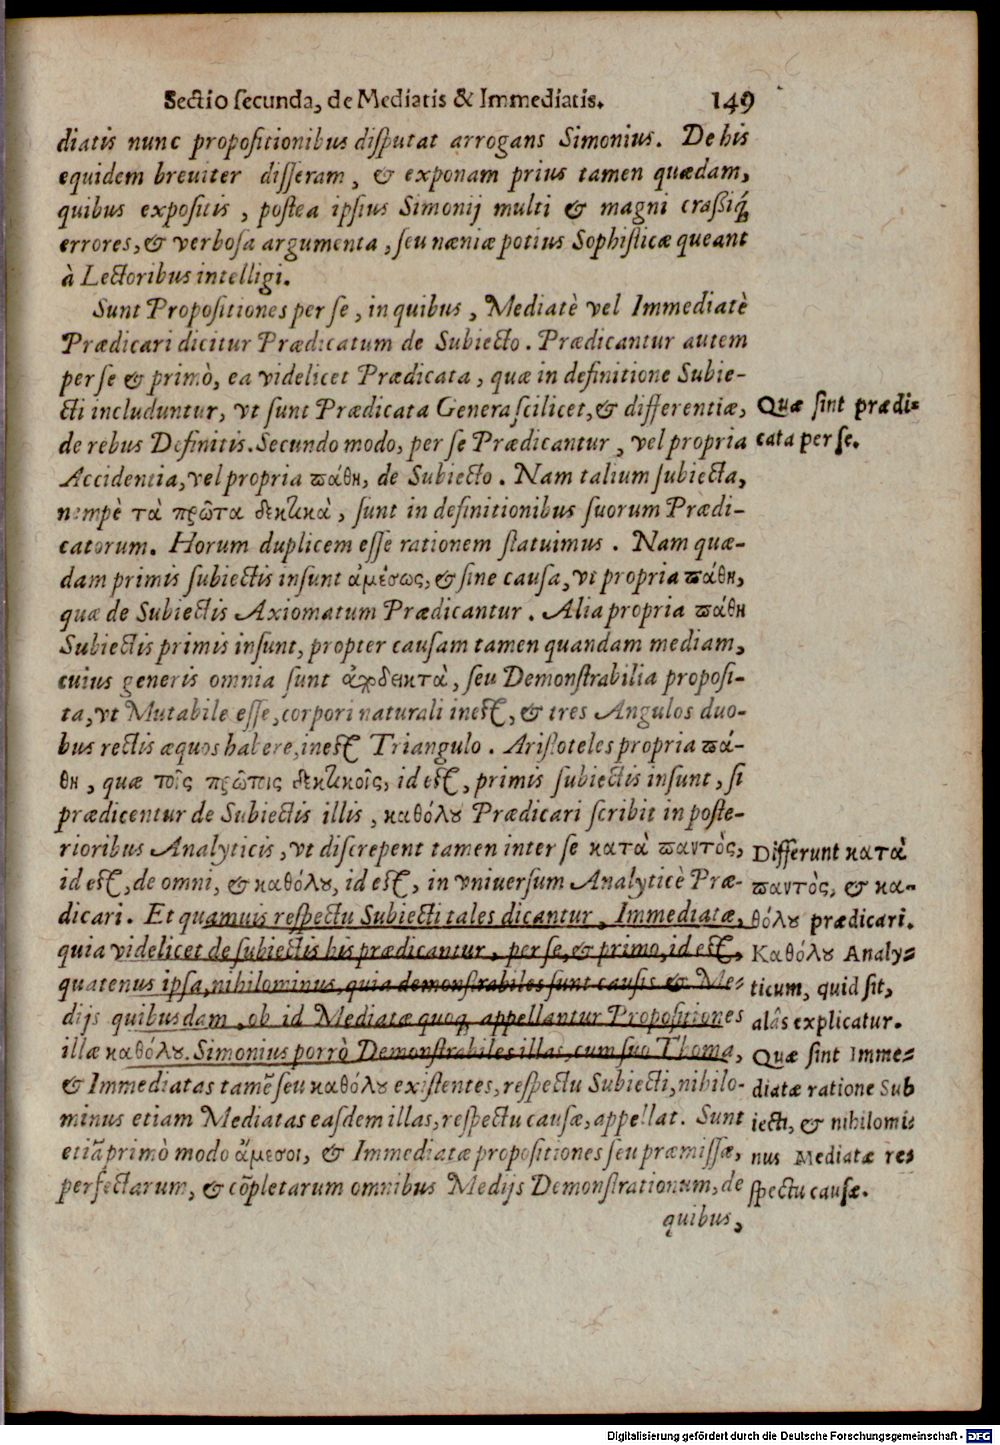 Sectio secunda, de Mediatis & Immediatis. 149
diatis nunc propositionibus disputat arrogans Simonius. De his
equidem breuiter disseram, & exponam prius tamen quædam,
quibus expositis, postea ipsius Simonij multi & magni craßiq́;
errores, & verbosa argumenta, seu næniæ potius Sophisticæ queant
à Lectoribus intelligi.
Sunt Propositiones per se, in quibus, Mediatè vel Immediatè
Prædicari dicitur Prædicatum de Subiecto. Prædicantur autem
per se & primò, ea videlicet Prædicata, quæ in definitione Subie-
cti includuntur, vt sunt Prædicata Genera scilicet, & differentiæ,
de rebus Definitis. Secundo modo, per se Prædicantur, vel propria
Accidentia, vel propria πάθη, de Subiecto. Nam talium subiecta,
nempè τὰ πρῶτα δεκτικὰ, sunt in definitionibus suorum Prædi-
catorum. Horum duplicem esse rationem statuimus. Nam quæ-
dam primis subiectis insunt ἀμέσως, & sine causa, vt propria πάθη,
quæ de Subiectis Axiomatum Prædicantur. Alia propria πάθη
Subiectis primis insunt, propter causam tamen quandam mediam,
cuius generis omnia sunt ἀποδεικτὰ, seu Demonstrabilia proposi-
ta, vt Mutabile esse, corpori naturali inest, & tres Angulos duo-
bus rectis æquos habere, inest Triangulo. Aristoteles propria πά-
θη, quæ τοῖς πρώτοις δεκτικοῖς, id est, primis subiectis insunt, si
prædicentur de Subiectis illis, καθόλου Prædicari scribit in poste-
rioribus Analyticis, vt discrepent tamen inter se κατὰ παντὸς,
id est, de omni, & καθόλου, id est, in vniuersum Analyticè Præ-
dicari. Et quamuis respectu Subiecti tales dicantur, Immediatæ,
quia videlicet de subiectis his prædicantur, per se, & primo, id est,
quatenus ipsa, nihilominus, quia demonstrabiles sunt causis & Me-
dijs quibusdam, ob id Mediatæ quoq; appellantur Propositiones
illæ καθόλου. Simonius porrò Demonstrabiles illas, cum suo Thoma,
& Immediatas tamē seu καθόλου existentes, respectu Subiecti, nihilo-
minus etiam Mediatas easdem illas, respectu causæ, appellat. Sunt
etiā primò modo ἄμεσοι, & Immediatæ propositiones seu præmissæ,
perfectarum, & cōpletarum omnibus Medijs Demonstrationum, de
quibus,
Quæ sint prædi-
cata per se.
Differunt κατὰ
παντὸς, & κα-
θόλου prædicari.
Καθόλου Analy-
ticum, quid sit,
aliâs explicatur.
Quæ sint Imme-
diatæ ratione Sub
iecti, & nihilomi-
nus Mediatæ re-
spectu causæ.
Digitalisierung gefördert durch die Deutsche Forschungsgemeinschaft - DFG